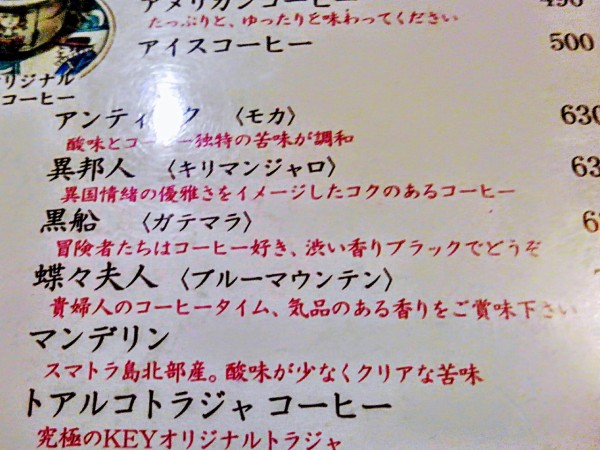 アメリカンコーヒー 490
たっぷりと、ゆったりと味わってください
アイスコーヒー 500
リジナル
コーヒー
アンティーク 〈モカ〉 630
酸味とコーヒー独特の苦味が調和
異邦人 〈キリマンジャロ〉 63
異国情緒の優雅さをイメージしたコクのあるコーヒー
黒船 〈ガテマラ〉 6
冒険者たちはコーヒー好き、渋い香りブラックでどうぞ
蝶々夫人 〈ブルーマウンテン〉
貴婦人のコーヒータイム、気品のある香りをご賞味下さい
マンデリン
スマトラ島北部産。酸味が少なくクリアな苦味
トアルコトラジャ コーヒー
究極のKEYオリジナルトラジャ